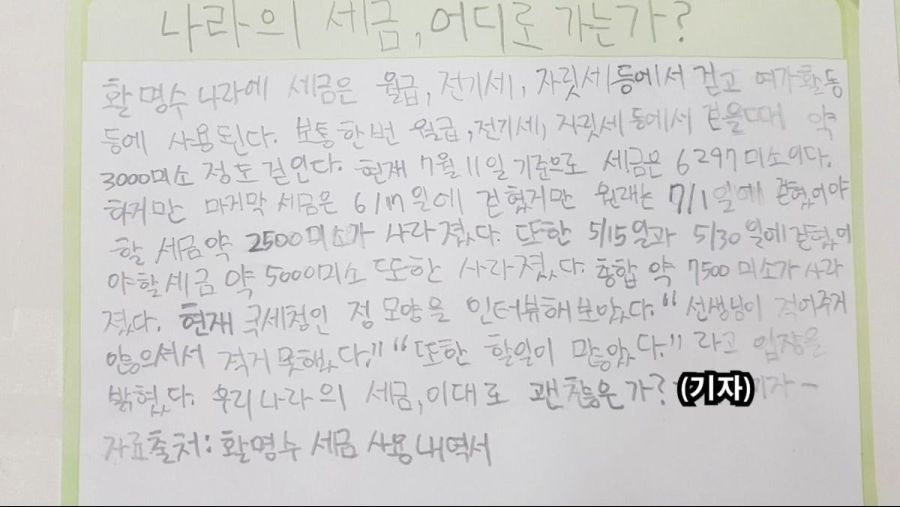 나라의 세금, 어디로 가는가?
활명수 나라에 세금은 월급, 전기세, 자릿세 등에서 걷고 여가활동
등에 사용된다. 보통 한번 월급, 전기세, 자릿세 등에서 걷을때 약
3000미소 정도 걷힌다. 현재 7월 11일 기준으로 세금은 6297미소이다.
하지만 마지막 세금은 6/17일에 걷혔지만 원래는 7/1일에 걷혔어야
할 세금약 2500미소가 사라졌다. 또한 5/15일과 5/30일에 걷혔어
야할 세금 약 5000미소 또한 사라졌다. 총합 약 7500미소가 사라
졌다. 현재 국세청인 정모양을 인터뷰해보았다. "선생님이 적어주지
않으셔서 적지 못했다." "또한 할일이 많았다." 라고 입장을
밝혔다. 우리나라의 세금, 이대로 괜찮은가? (기자) 기자 -
자료출처: 활명수 세금 사용 내역서